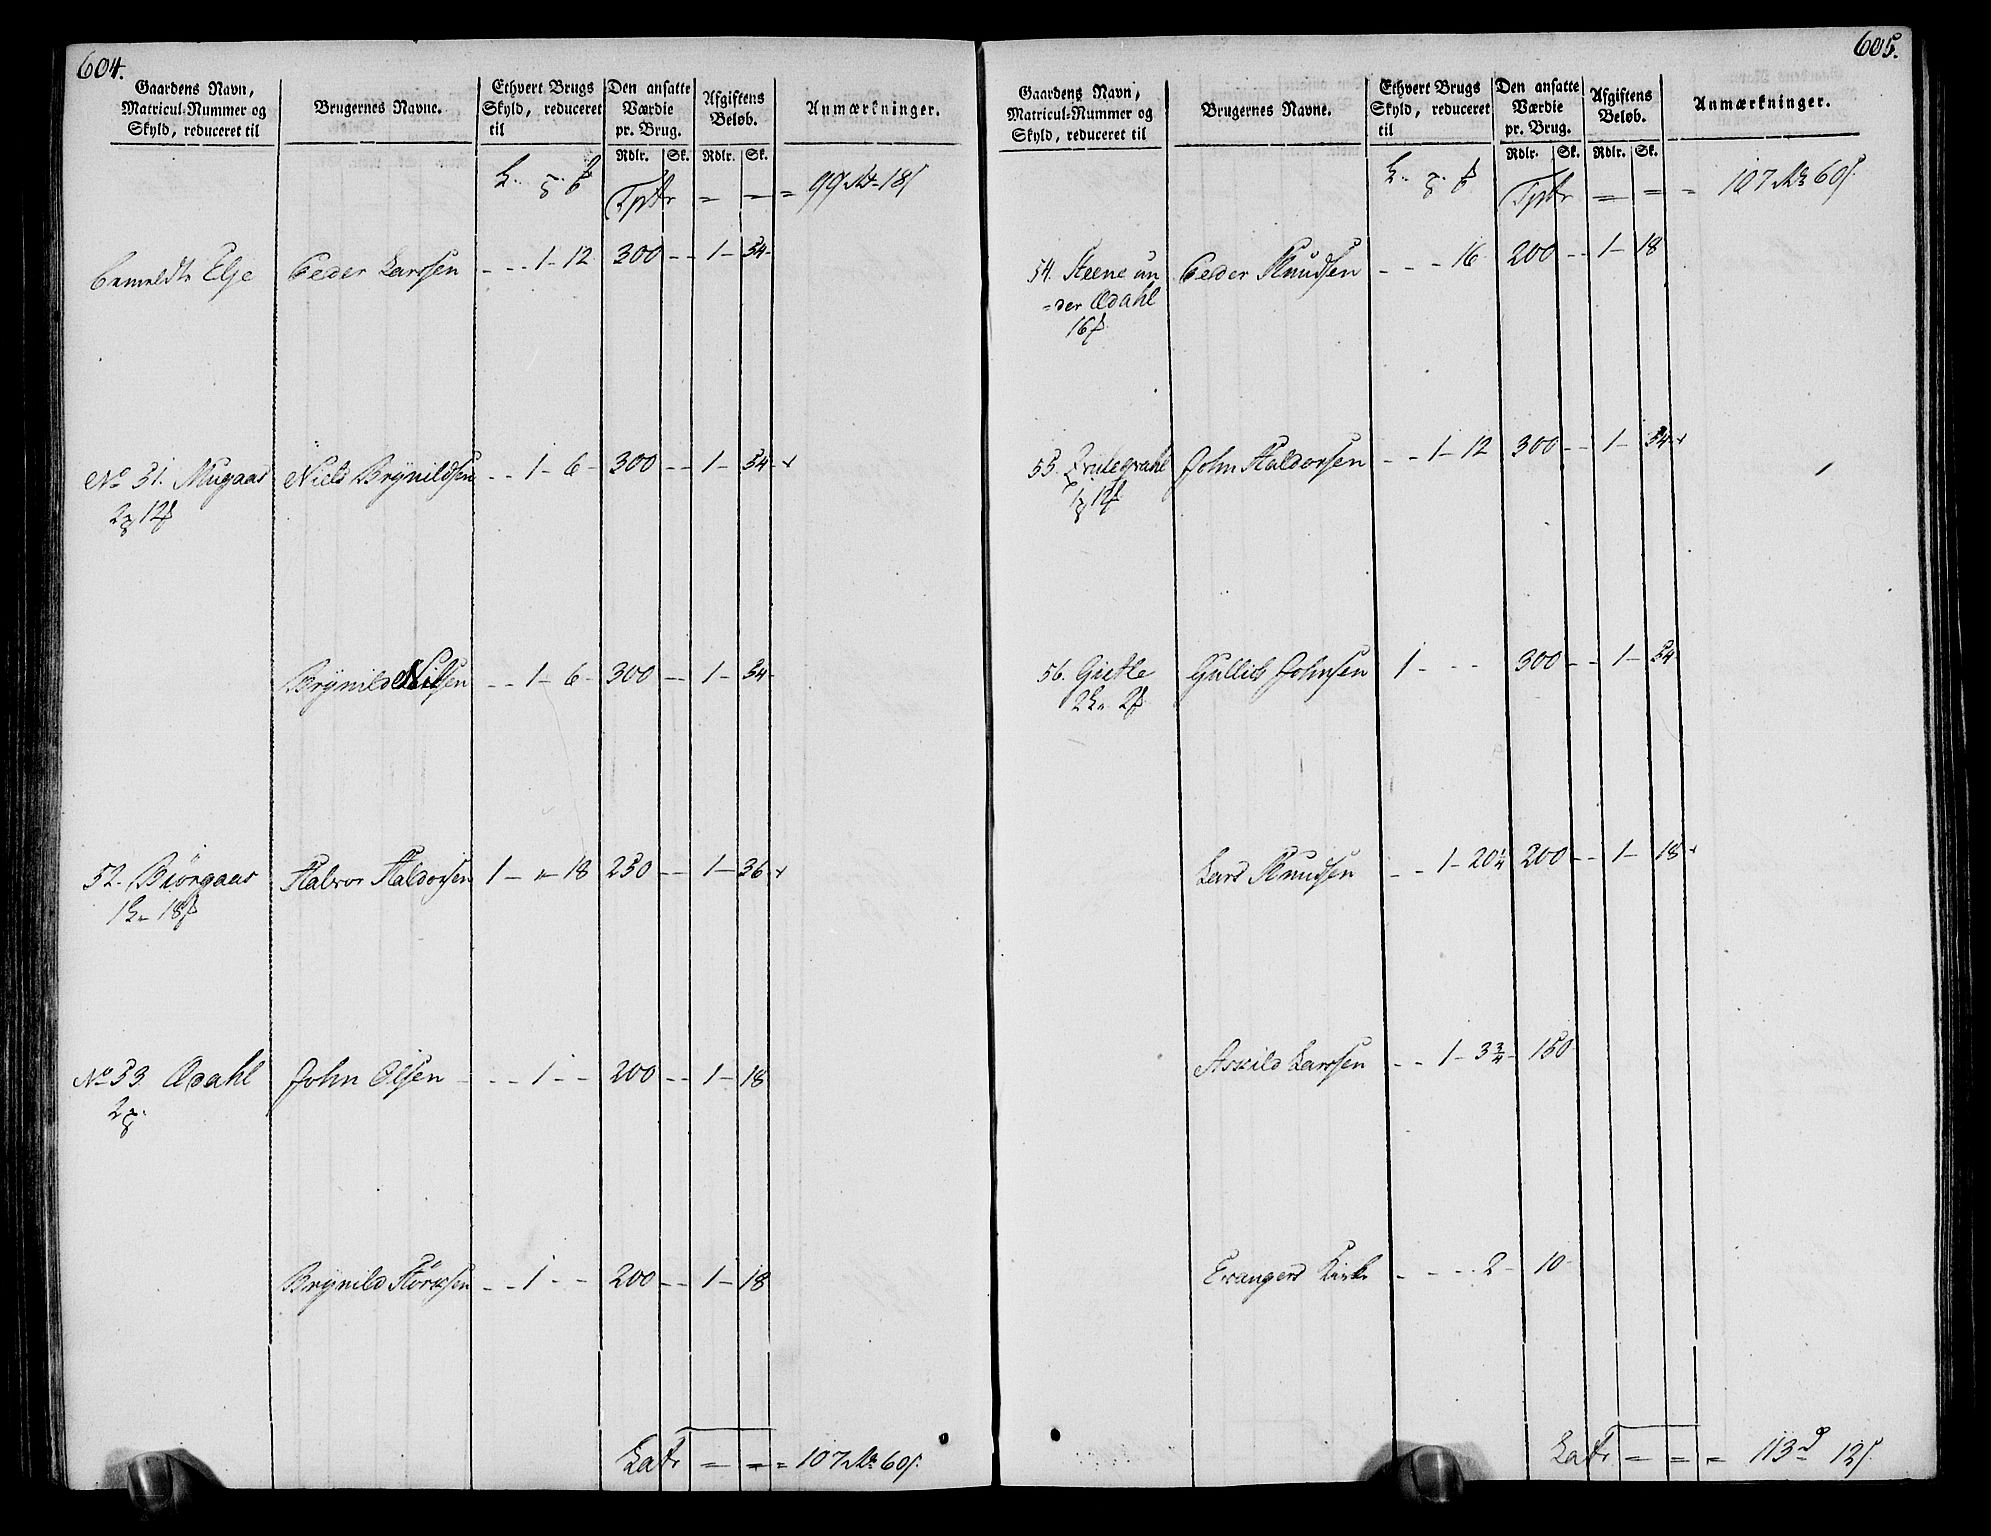 604.
Gaardens Navn, Matricul-Nummer og Skyld, reduceret til | Brugernes Navne. | Ethvert Brugs Skyld, reduceret til | Den ansatte Værdie pr. Brug. Rdlr. Sk. | Afgiftens Beløb. Rdlr. Sk. | Anmærkninger.
Tptr = = = 99 18
Elje Peder Larssen - - 1 - 12 300 - - 1 - 54
No 51. Mugaas Niels Brÿnildsen - - 1 - 6 - 300 - - 1 - 54
2 12
Brÿnild Nilsen - - 1 - 6 - 300 - - 1 - 54
52. Biörgaas Halvor Haldorsen 1 - " - 18 250 - - 1 - 36
1 18
No 53 Ædahl John Olsen - - - 1 - - 200 - - 1 - 18
2
Brÿnild Störksen - - 1 - - 200 - - 1 - 18
Latr = = = 107 60
605.
Gaardens Navn, Matricul-Nummer og Skyld, reduceret til | Brugernes Navne. | Ethvert Brugs Skyld, reduceret til | Den ansatte Værdie pr. Brug. Rdlr. Sk. | Afgiftens Beløb. Rdlr. Sk. | Anmærkninger.
Tptr = = = 107 60
54. Steene un Peder Knudsen - - - 16 200 - - 1 - 18
=der Ædahl
16
55. John Haldorsen - - 1 - 12 300 - - 1 - 54
1 12
56. Gietle Gullich Johnsen 1 - - - 300 - - 1 - 54
2 2
Lars Knudsen - - 1 - 20 1/4 200 - - 1 - 18
Askild Larssen - - 1 - 3 3/4 - 150
Evangers Kirke - - - - 2 - 10
Latr = = = 113 12